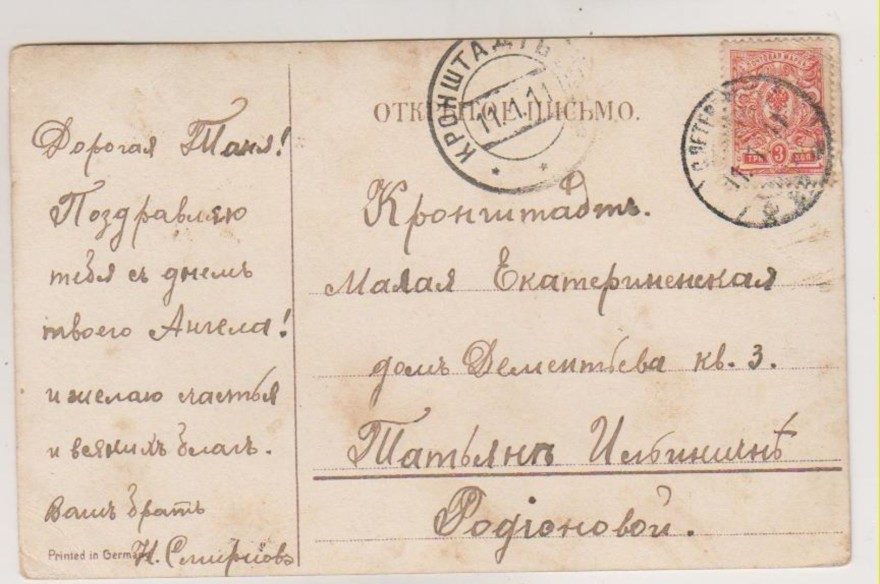 Дорогая Таня!
Поздравляю
тебя съ днемъ
твоего Ангела!
и желаю счастья
и всякихъ благъ.
Вашъ братъ
Н. Смирновъ
Printed in Germany
ОТКРЫТОЕ ПИСЬМО.
КРОНШТАДТЪ
11.1.11
С.ПЕТЕР
ПОЧТОВАЯ МАРКА
ТРИ 3 КОП
Кронштадтъ.
Малая Екатериненская
домъ Дементьева кв. 3.
Татьянѣ Ильиничнѣ
Родіоновой.